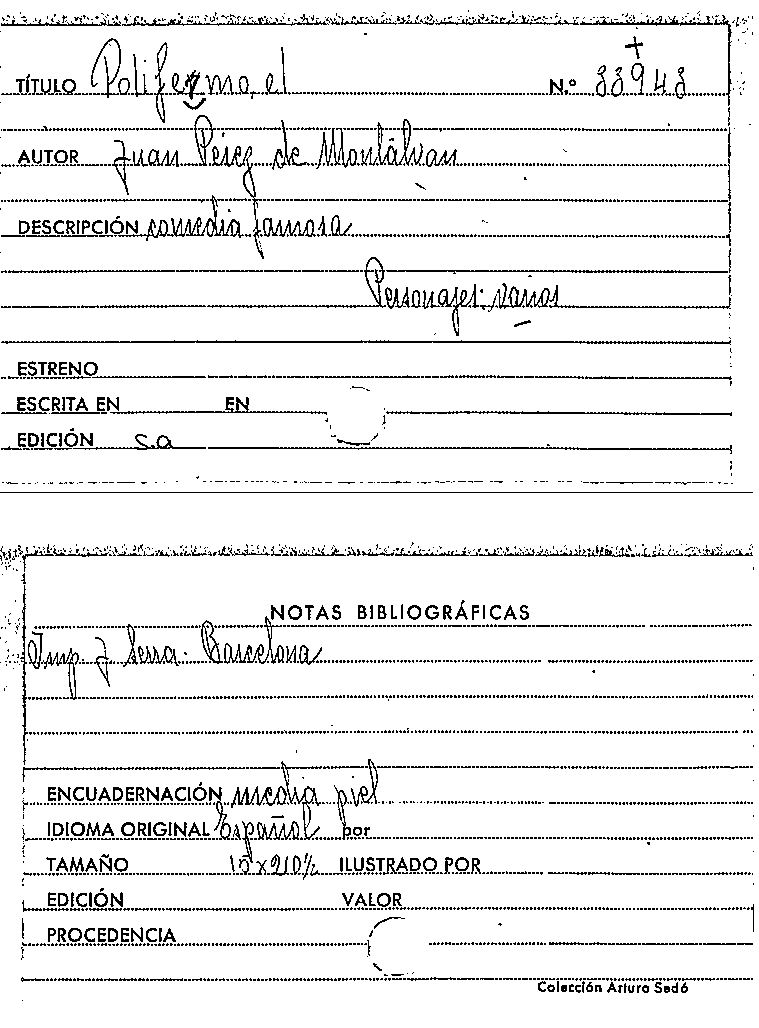 +
TÍTULO Polifermo, el N.º 33943
AUTOR Juan Pérez de Montálvan
DESCRIPCIÓN comédia famosa
Personajes: varios
ESTRENO
ESCRITA EN EN
EDICIÓN s.a
NOTAS BIBLIOGRÁFICAS
Imp. J Serra. Barcelona
ENCUADERNACIÓN media piel
IDIOMA ORIGINAL Español por
TAMAÑO ILUSTRADO POR
EDICIÓN VALOR
PROCEDENCIA
Colección Arturo Sedó